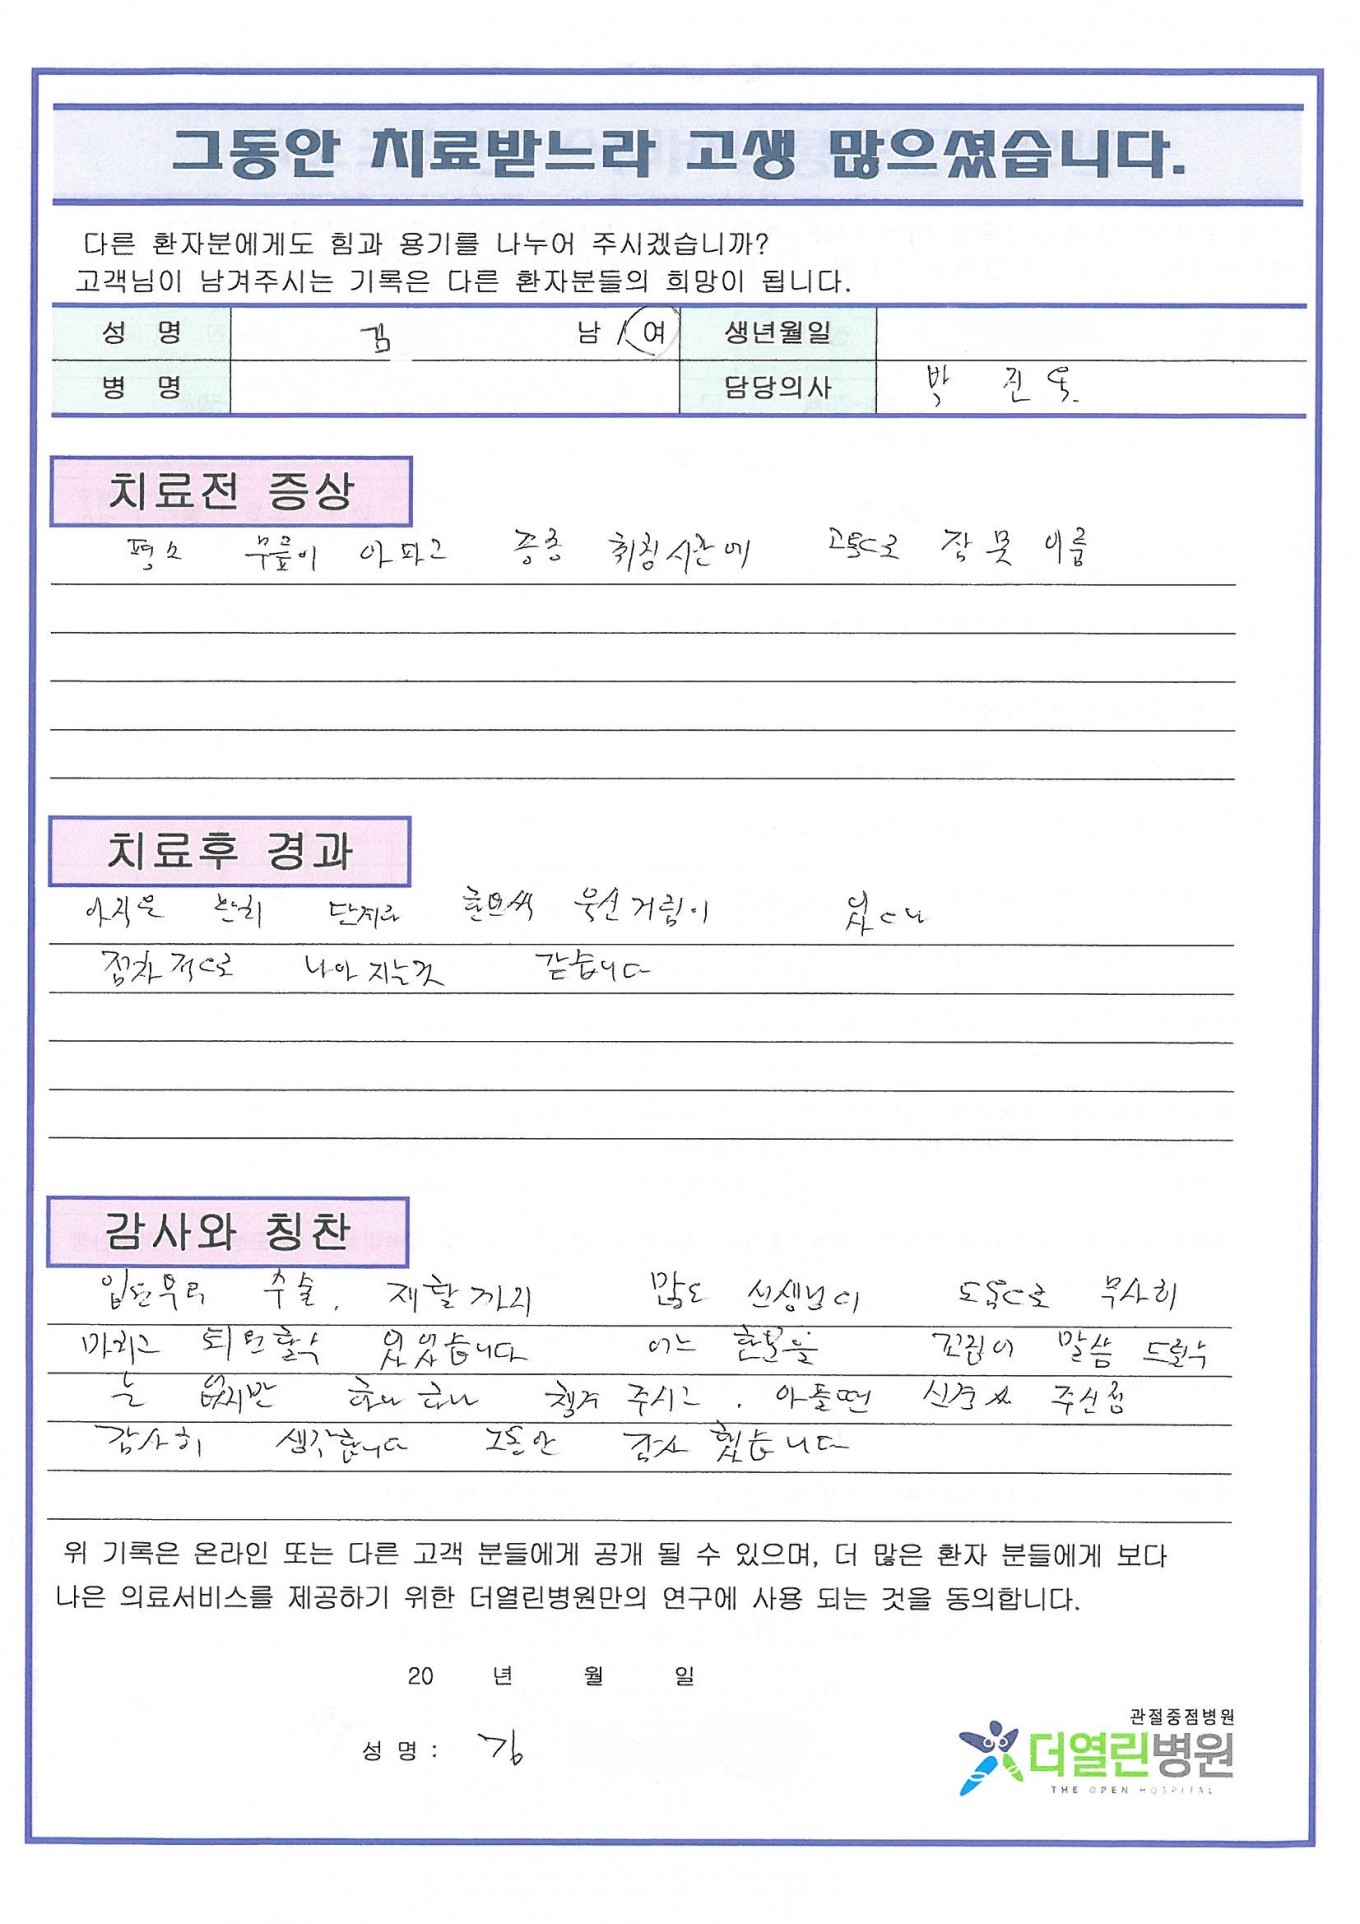 그동안 치료받느라 고생 많으셨습니다.
다른 환자분에게도 힘과 용기를 나누어 주시겠습니까?
고객님이 남겨주시는 기록은 다른 환자분들의 희망이 됩니다.
성 명 김 남 / 여 생년월일
병 명 담당의사 박 진옥
치료전 증상
평소 무릎이 아파고 종종 취침시간에 고통으로 잠 못 이룸
치료후 경과
아직은 단지라 욱신거림이 있으나
점차적으로 나아지는것 같습니다
감사와 칭찬
입원부터 수술, 재활까지 많은 선생님이 도움으로 무사히
마치고 퇴원할수 있었습니다 어느 한분을 꼬집어 말씀 드릴수
는 없지만 하나 하나 챙겨 주시고, 아플땐 신경써 주신점
감사히 생각합니다 그동안 감사했습니다
위 기록은 온라인 또는 다른 고객 분들에게 공개 될 수 있으며, 더 많은 환자 분들에게 보다
나은 의료서비스를 제공하기 위한 더열린병원만의 연구에 사용 되는 것을 동의합니다.
20 년 월 일
성 명 : 김
관절중점병원
더열린병원
THE OPEN HOSPITAL